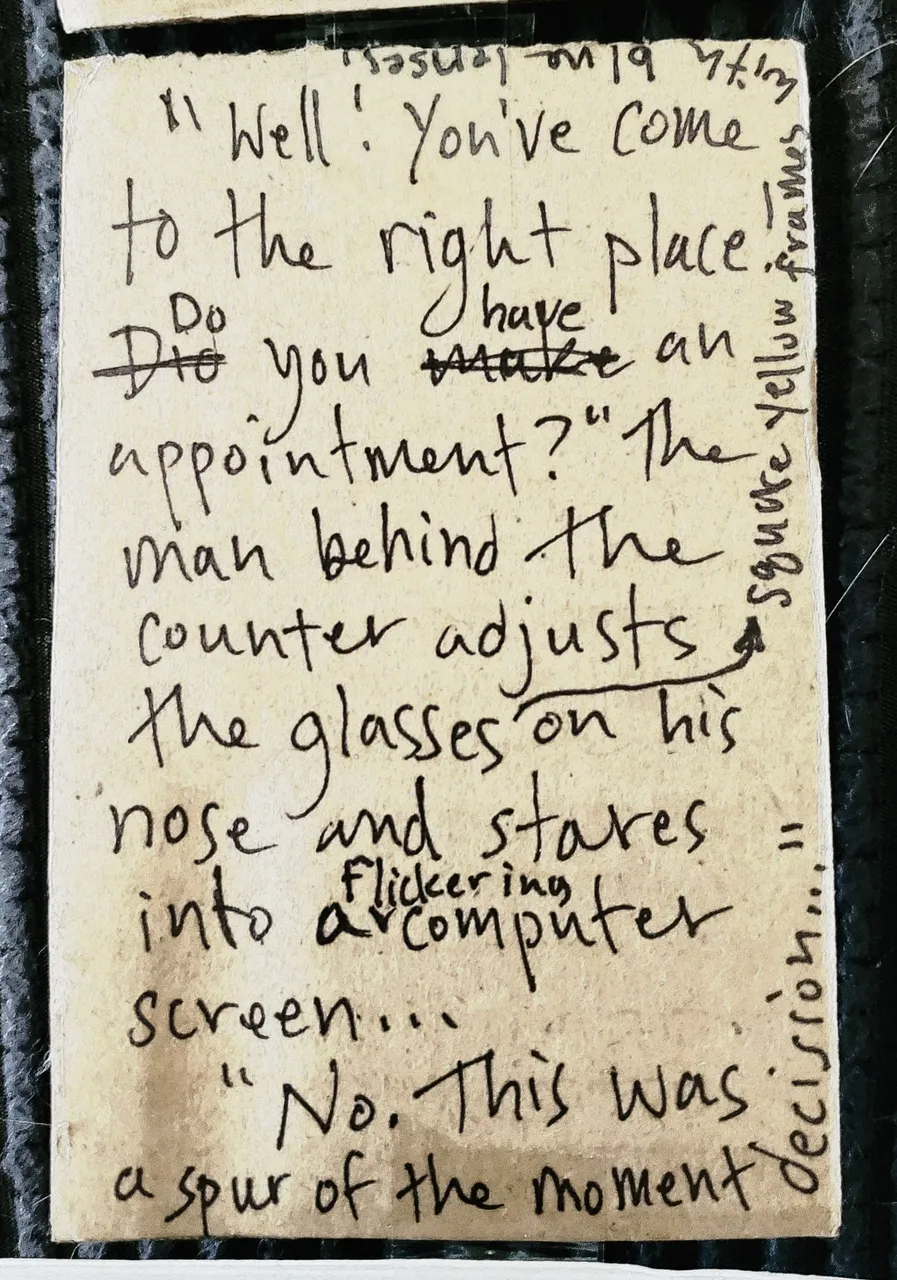 "Well! You've come
to the right place!
Do have
Did you make an
appointment?" The
man behind the
counter adjusts
the glasses on his
square yellow frames
with blue lenses,
nose and stares
flickering
into a computer
screen...
"No. This was
a spur of the moment
decision..."